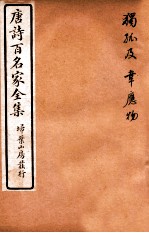 獨孤及 韋應物
唐詩百名家全集
埽葉山房發行